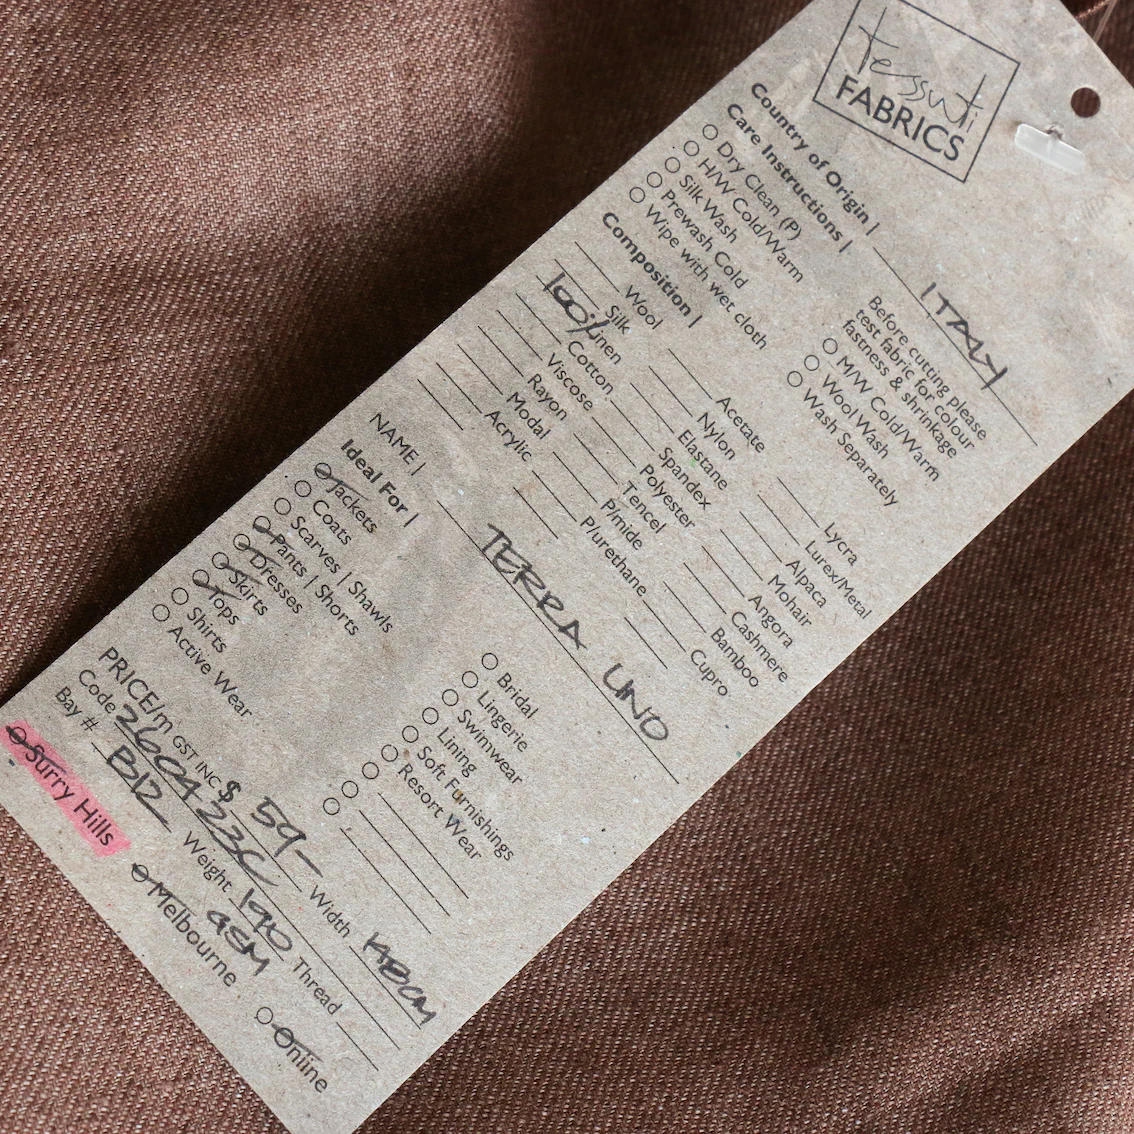 tessuti
FABRICS
Country of Origin | ITALY
Care Instructions |
Dry Clean (P)
H/W Cold/Warm
Silk Wash
Prewash Cold
Wipe with wet cloth
Before cutting please
test fabric for colour
fastness & shrinkage
M/W Cold/Warm
Wool Wash
Wash Separately
Composition |
Wool
Silk
100% Linen
Cotton
Viscose
Rayon
Modal
Acrylic
Acetate
Nylon
Elastane
Spandex
Polyester
Tencel
P/mide
P/urethane
Lycra
Lurex/Metal
Alpaca
Mohair
Angora
Cashmere
Bamboo
Cupro
NAME | TERRA LINO
Ideal For |
Jackets
Coats
Scarves | Shawls
Pants | Shorts
Dresses
Skirts
Tops
Shirts
Active Wear
Bridal
Lingerie
Swimwear
Lining
Soft Furnishings
Resort Wear
PRICE/m GST INC $ 59- Width
Code 260423C Weight 190 GSM Thread
Bay # B12
Surry Hills
Melbourne
Online